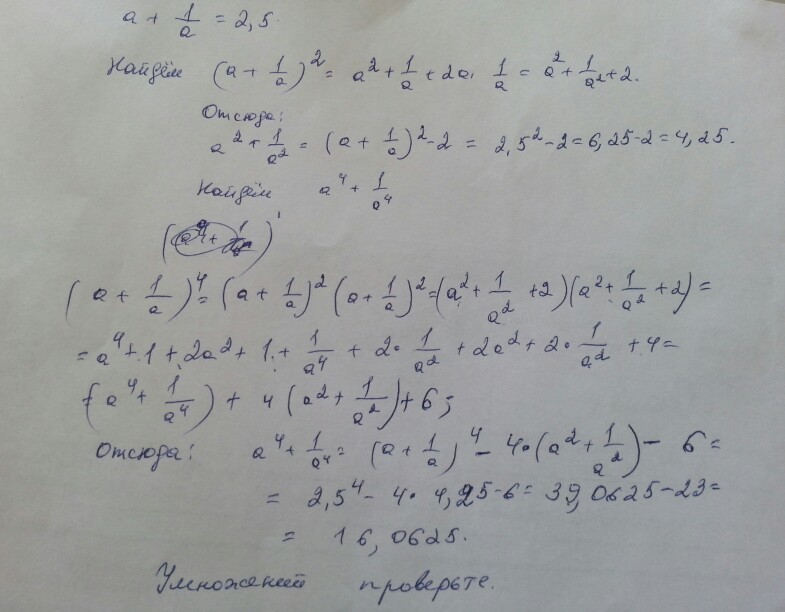 a + 1/a = 2,5.
Найдём (a + 1/a)² = a² + 1/a + 2a · 1/a = a² + 1/a² + 2.
Отсюда:
a² + 1/a² = (a + 1/a)² - 2 = 2,5² - 2 = 6,25 - 2 = 4,25.
Найдём a⁴ + 1/a⁴
(a + 1/a)⁴ = (a + 1/a)² (a + 1/a)² = (a² + 1/a² + 2)(a² + 1/a² + 2) =
= a⁴ + 1 + 2a² + 1 + 1/a⁴ + 2 · 1/a² + 2a² + 2 · 1/a² + 4 =
= (a⁴ + 1/a⁴) + 4 (a² + 1/a²) + 6;
Отсюда: a⁴ + 1/a⁴ = (a + 1/a)⁴ - 4 · (a² + 1/a²) - 6 =
= 2,5⁴ - 4 · 4,25 - 6 = 39,0625 - 23 =
= 16,0625.
Умножений проверьте.